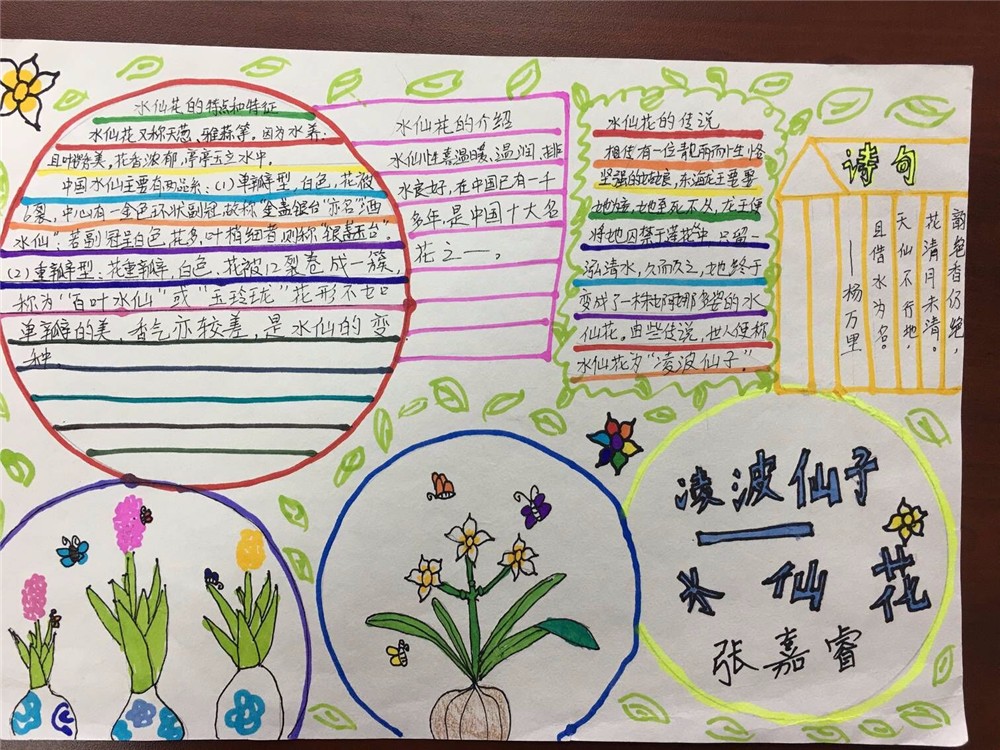 水仙花的特点和特征
水仙花又称天葱、雅蒜等。因为水养、
且叶姿秀美，花香浓郁，亭亭玉立水中。
中国水仙主要有两品系：(1)单瓣型，白色，花被
6裂，中心有一金色环状副冠，故称“金盏银台”亦名“酒
水仙”；若副冠呈白色，花多，叶梢细者，则称“银盏玉台”。
(2)重瓣型：花重瓣，白色、花被12裂卷成一簇，
称为“百叶水仙”或“玉玲珑”花形不如
单瓣的美，香气亦较差，是水仙的变
种.
水仙花的介绍
水仙性喜温暖、温润、排
水良好，在中国已有一千
多年，是中国十大名
花之一。
水仙花的传说
相传有一位靓丽而个性
坚强的姑娘，东海龙王要娶
她为妾，她至死不从，龙王便
将她囚禁于莲花中，只留一
泓清水，久而久之，她终于
变成了一株婀娜多姿的水
仙花。由些传说，世人便称
水仙花为“凌波仙子”。
诗句
韵绝香仍绝，
花清月未清。
天仙不行地，
且借水为名。
——杨万里
凌波仙子
——水仙花
张嘉睿